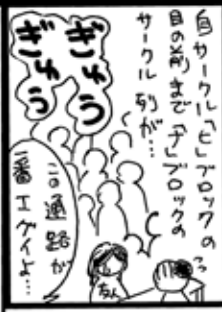 自サークル「ヒ」ブロックの
目の前まで「ナ」ブロックの
サークル列が…
ぎゅう
ぎゅう
この通路が
一番エグイよ…
友人